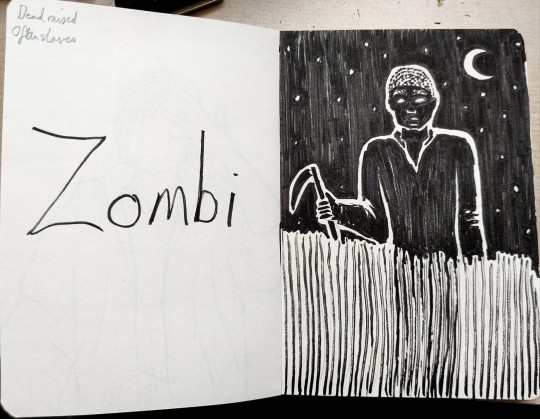 Dead raised
Often slaves
Zombi